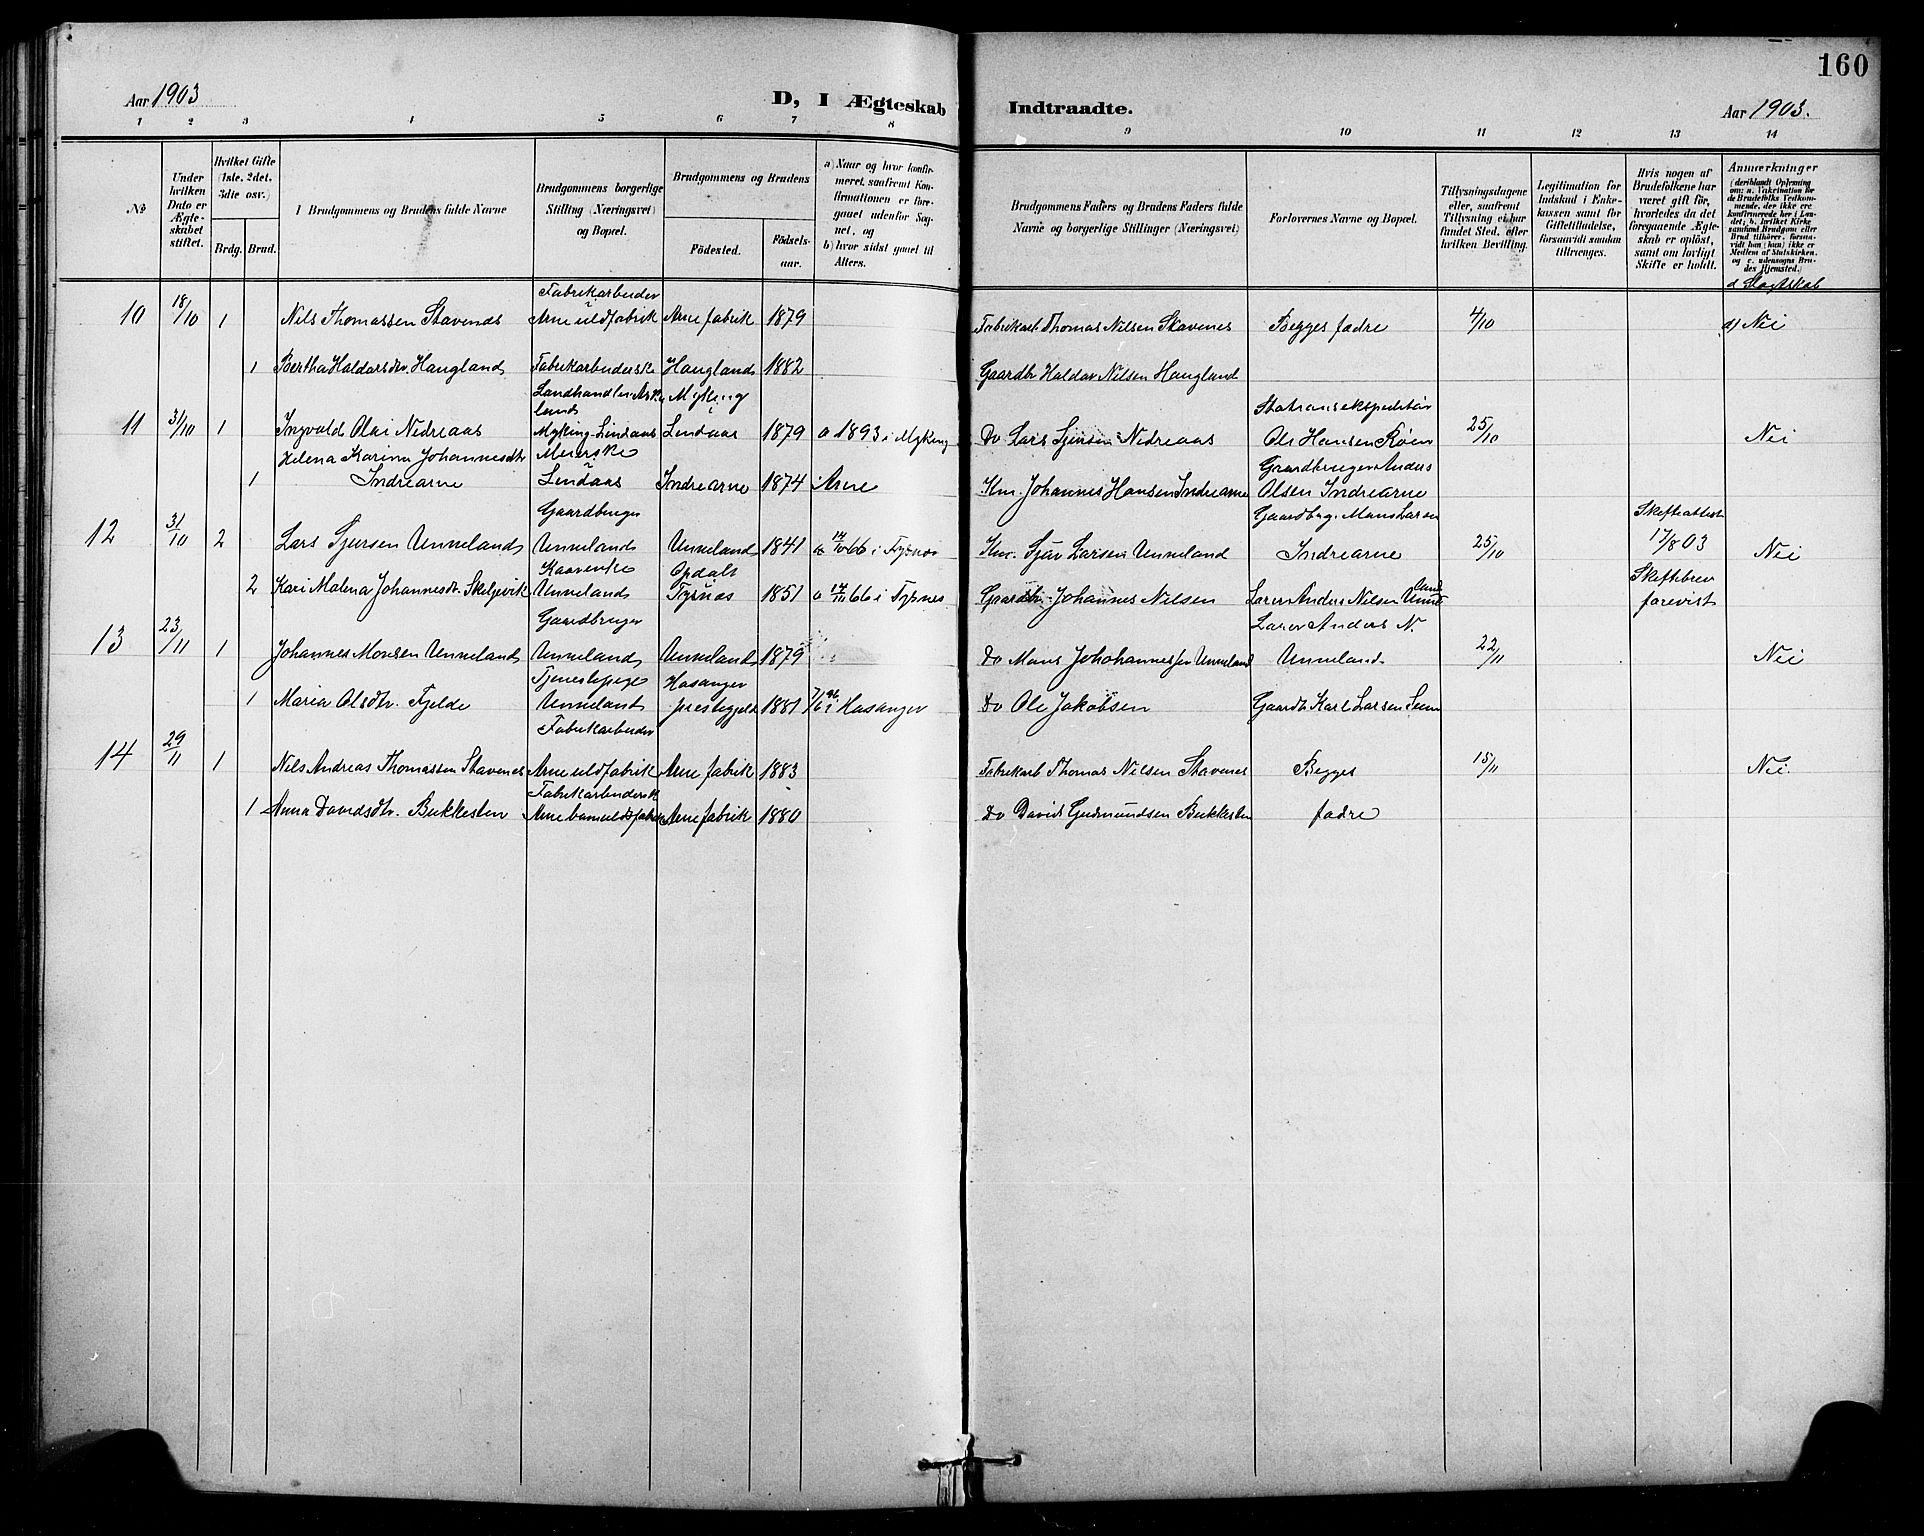 160
Aar 1903
D, I Ægteskab Indtraadte.
Aar 1903.
1 2 3 4 5 6 7 8 9 10 11 12 13 14
No
Under hvilken Dato er Ægteskabet stiftet.
Hvilket Gifte (1ste, 2det, 3die osv.)
Brdg. Brud.
Brudgommens og Brudens fulde Navne
Brudgommens borgerlige Stilling (Næringsvei) og Bopæl.
Brudgommens og Brudens
Födested. Födsels-aar.
a) Naar og hvor konfirmeret, saafremt Konfirmationen er foregaaet udenfor Sognet, og
b) hvor sidst gaaet til Alters.
Brudgommens Faders og Brudens Faders fulde Navne og borgerlige Stillinger (Næringsvei)
Forlovernes Navne og Bopæl.
Tillysningsdagene eller, saafremt Tillysning ei har fundet Sted, efter hvilken Bevilling.
Legitimation for Indskud i Enkekassen samt for Giftetilladelse, forsaavidt saadan tiltrænges.
Hvis nogen af Brudefolkene har været gift för, hvorledes da det foregaaende Ægteskab er oplöst, samt om lovligt Skifte er holdt.
Anmærkninger
(deriblandt Oplysning om: a. Vakcination for de Brudefolks Vedkommende, der ikke ere konfirmerede her i Landet; b. hvilket Kirkesamfund Brudgom eller Brud tilhörer, forsaavidt han (hun) ikke er Medlem af Statskirken, og c. udensogns Brudes Hjemsted.)
d Slagtskab
Fabrikarbeider
10 18/10 1 Nils Thomassen Stavenes Arne uldfabrik Arne fabrik 1879 Fabrikarb Thomas Nilsen Stavenes Begges fædre 4/10 d) Nei
1 Bertha Haldorsdtr. Haugland Fabrikarbeiderske Haugland 1882 Gaardbr Haldor Nilsen Haugland
Myking
Stationsekspeditör
11 31/10 1 Ingvald Olai Nedreaas Myking-Lindaas Lindaas 1879 a 1893 i Myking Do Lars Sjursen Nedreaas Ole Hansen Röen 25/10 Nei
Helena Karina Johannesdtr Meierske Gaardbruger Anders
1 Indrearne Lindaas Indrearne 1874 Arne Km. Johannes Hansen Indrearne Olsen Indrearne
Gaardbruger Gaardbrug. Mons Larsen Skifteattest
12 31/10 2 Lars Sjursen Unneland Unneland Unneland 1841 66 i Tysnes Km. Sjur Larsen Unneland Indrearne 25/10 17/8 03 Nei
Opdal Skiftebrev
2 Kari Malena Johannesdtr. Skeljevik Unneland Tysnæs 1851 a 14/11 66 i Tysnes Gaardbr. Johannes Nilsen Lærer Anders Nilsen Unneland forevist
Gaardbruger Lærer Anders N.
13 23/11 1 Johannes Monsen Unneland Unneland Unneland 1879 Do Mons Johohannessen Unneland Unneland 22/11 Nei
Tjenestepige Hosanger
1 Maria Olsdtr. Fjelde Unneland prestegjeld 1881 7/6 96 i Hosanger Do Ole Jakobsen Gaardb. Karl Larsen
Fabrikarbeider
14 29/11 1 Nils Andreas Thomassen Stavenes Arne uldfabrik Arne fabrik 1883 Fabrikarb Thomas Nilsen Stavenes Begges 15/11 Nei.
Fabrikarbeidersk
1 Anna Davidsdtr. Bukkesten Arne bomuldsfabrik Arne fabrik 1880 Do David Gudmundsen Bukkesten fædre